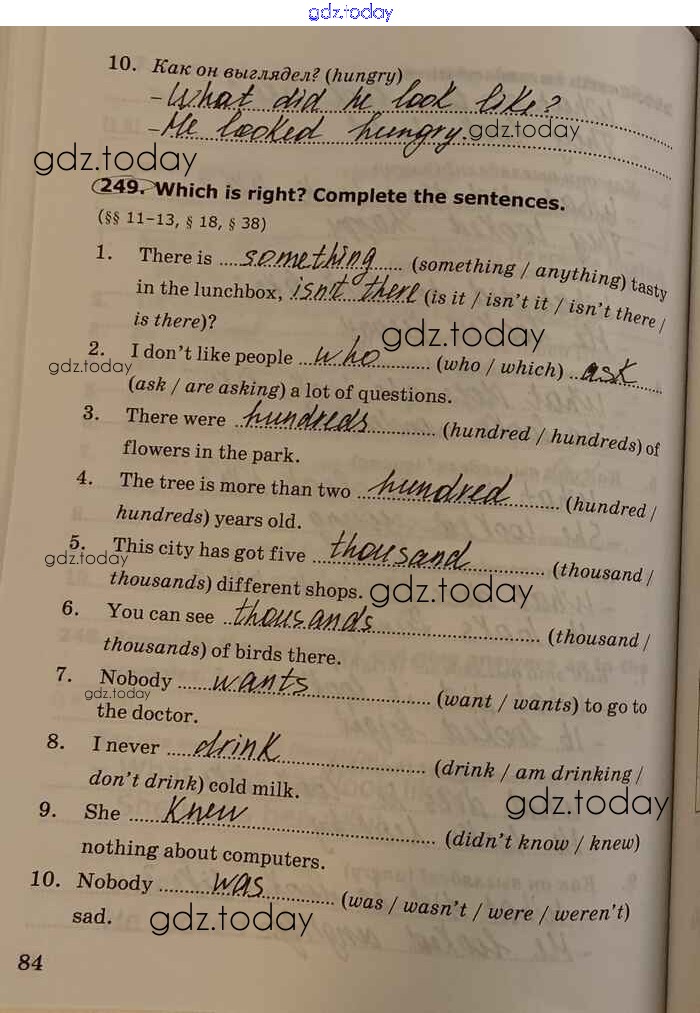 gdz.today
10. Как он выглядел? (hungry)
– What did he look like?
– He looked hungry. gdz.today
gdz.today
249. Which is right? Complete the sentences.
(§§ 11–13, § 18, § 38)
1. There is something (something / anything) tasty
in the lunchbox, isn't there (is it / isn't it / isn't there /
is there)?
gdz.today
2. I don't like people who (who / which) ask
gdz.today
(ask / are asking) a lot of questions.
3. There were hundreds (hundred / hundreds) of
flowers in the park.
4. The tree is more than two hundred (hundred /
hundreds) years old.
5. This city has got five thousand (thousand /
gdz.today
thousands) different shops. gdz.today
6. You can see thousands (thousand /
thousands) of birds there.
7. Nobody wants (want / wants) to go to
gdz.today
the doctor.
8. I never drink (drink / am drinking /
don't drink) cold milk.
gdz.today
9. She knew (didn't know / knew)
nothing about computers.
10. Nobody was (was / wasn't / were / weren't)
sad. gdz.today
84